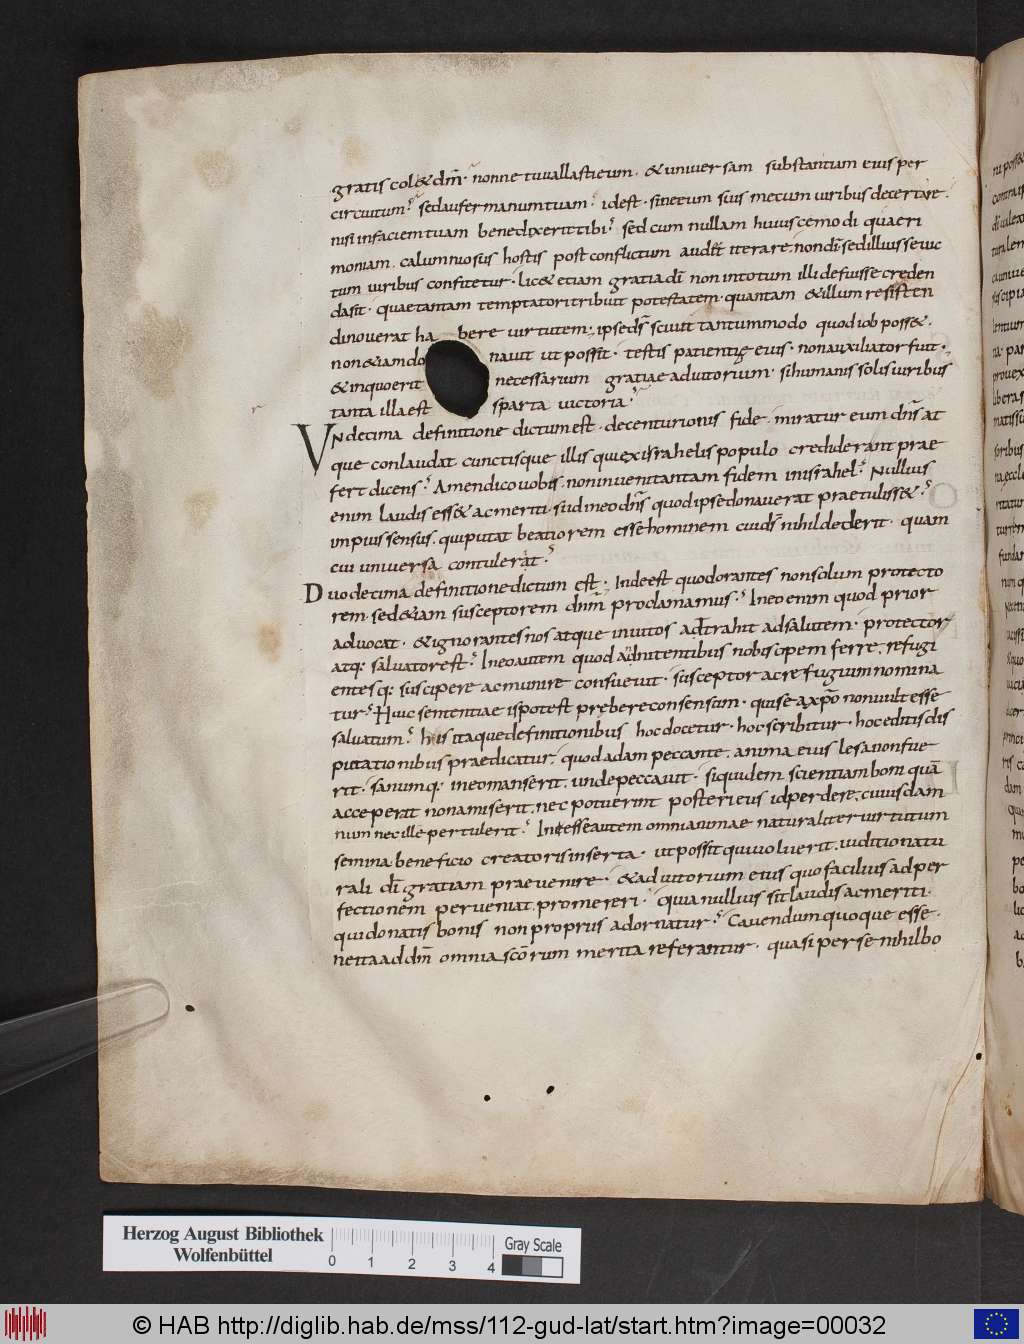 gratis col& dm̄· nonne tu uallasti eum· & uniuersam substantiam eius per
circuitum? sed aufer manum tuam? id est· sine eum suis mecum uiribus decertare·
nisi in faciem tuam benedixerit tibi? sed cum nullam huiuscemodi quaeri
moniam· calumniosus hostis post conflictum audeat iterare; non dī sed illius se uic
tum uiribus confitetur· lic& etiam gratia dī non in totum illi defuisse creden
da sit· quae tantam temptatori tribuit potestatem· quantam & illum resisten
di nouerat habere uirtutem; ipse dn̄s sciuit tantummodo quod iob poss&·
non & iam donauit ut possit· testis patientię eius· non auxiliator fuit·
& inquo erit necessarium gratiae adiutorium· si humanis solis uiribus
tanta illa est sparta uictoria?
VNdecima definitione dictum est· de centurionis fide· miratur eum dn̄s at
que conlaudat· cunctisque illis qui ex israhelis populo crediderant prae
fert dicens? Amen dico uobis· non inueni tantam fidem in israhel? Nullius
enim laudis ess& ac meriti· si id in eo dn̄s quod ipse donauerat praetuliss&?
impius sensus· qui putat beatiorem esse hominem cui ds̄ nihil dederit· quam
cui uniuersa contulerat?
Duodecima definitione dictum est; Inde est quod orantes non solum protecto
rem· sed & iam susceptorem dnm̄ proclamamus? In eo enim quod prior
aduocat· & ignorantes nos atque inuitos adtrahit ad salutem· protector
atq; saluator est? In eo autem quod adnitentibus nobis opem ferre; refugi
entesq; suscipere ac munire consueuit· susceptor ac refugium nomina
tur? Huic sententiae is potest prębere consensum· qui se a xp̄o non uult esse
saluatum? his itaque definitionibus hoc docetur· hoc scribitur· hoc editis dis
putationibus praedicatur; quod adam peccante· anima eius lesa non fue
rit· sanumq; in eo manserit· unde peccauit· siquidem scientiam boni quā
acceperit non amiserit· nec potuerint posteri eius id perdere; cuius dam
num nec ille pertulerit? Inesse autem omni animae naturaliter uirtutum
semina beneficio creatoris inserta· ut possit qui uoluerit· iuditio natu
rali dī gratiam praeuenire· & adiutorium eius quo facilius ad per
fectionem perueniat promereri? quia nullius sit laudis ac meriti·
qui donatis bonis non propriis adornatur? Cauendum quoque esse·
ne ita ad dm̄ omnia scōrum merita referantur· quasi per se nihil bo
Herzog August Bibliothek
Wolfenbüttel
0 1 2 3 4
Gray Scale
© HAB http://diglib.hab.de/mss/112-gud-lat/start.htm?image=00032